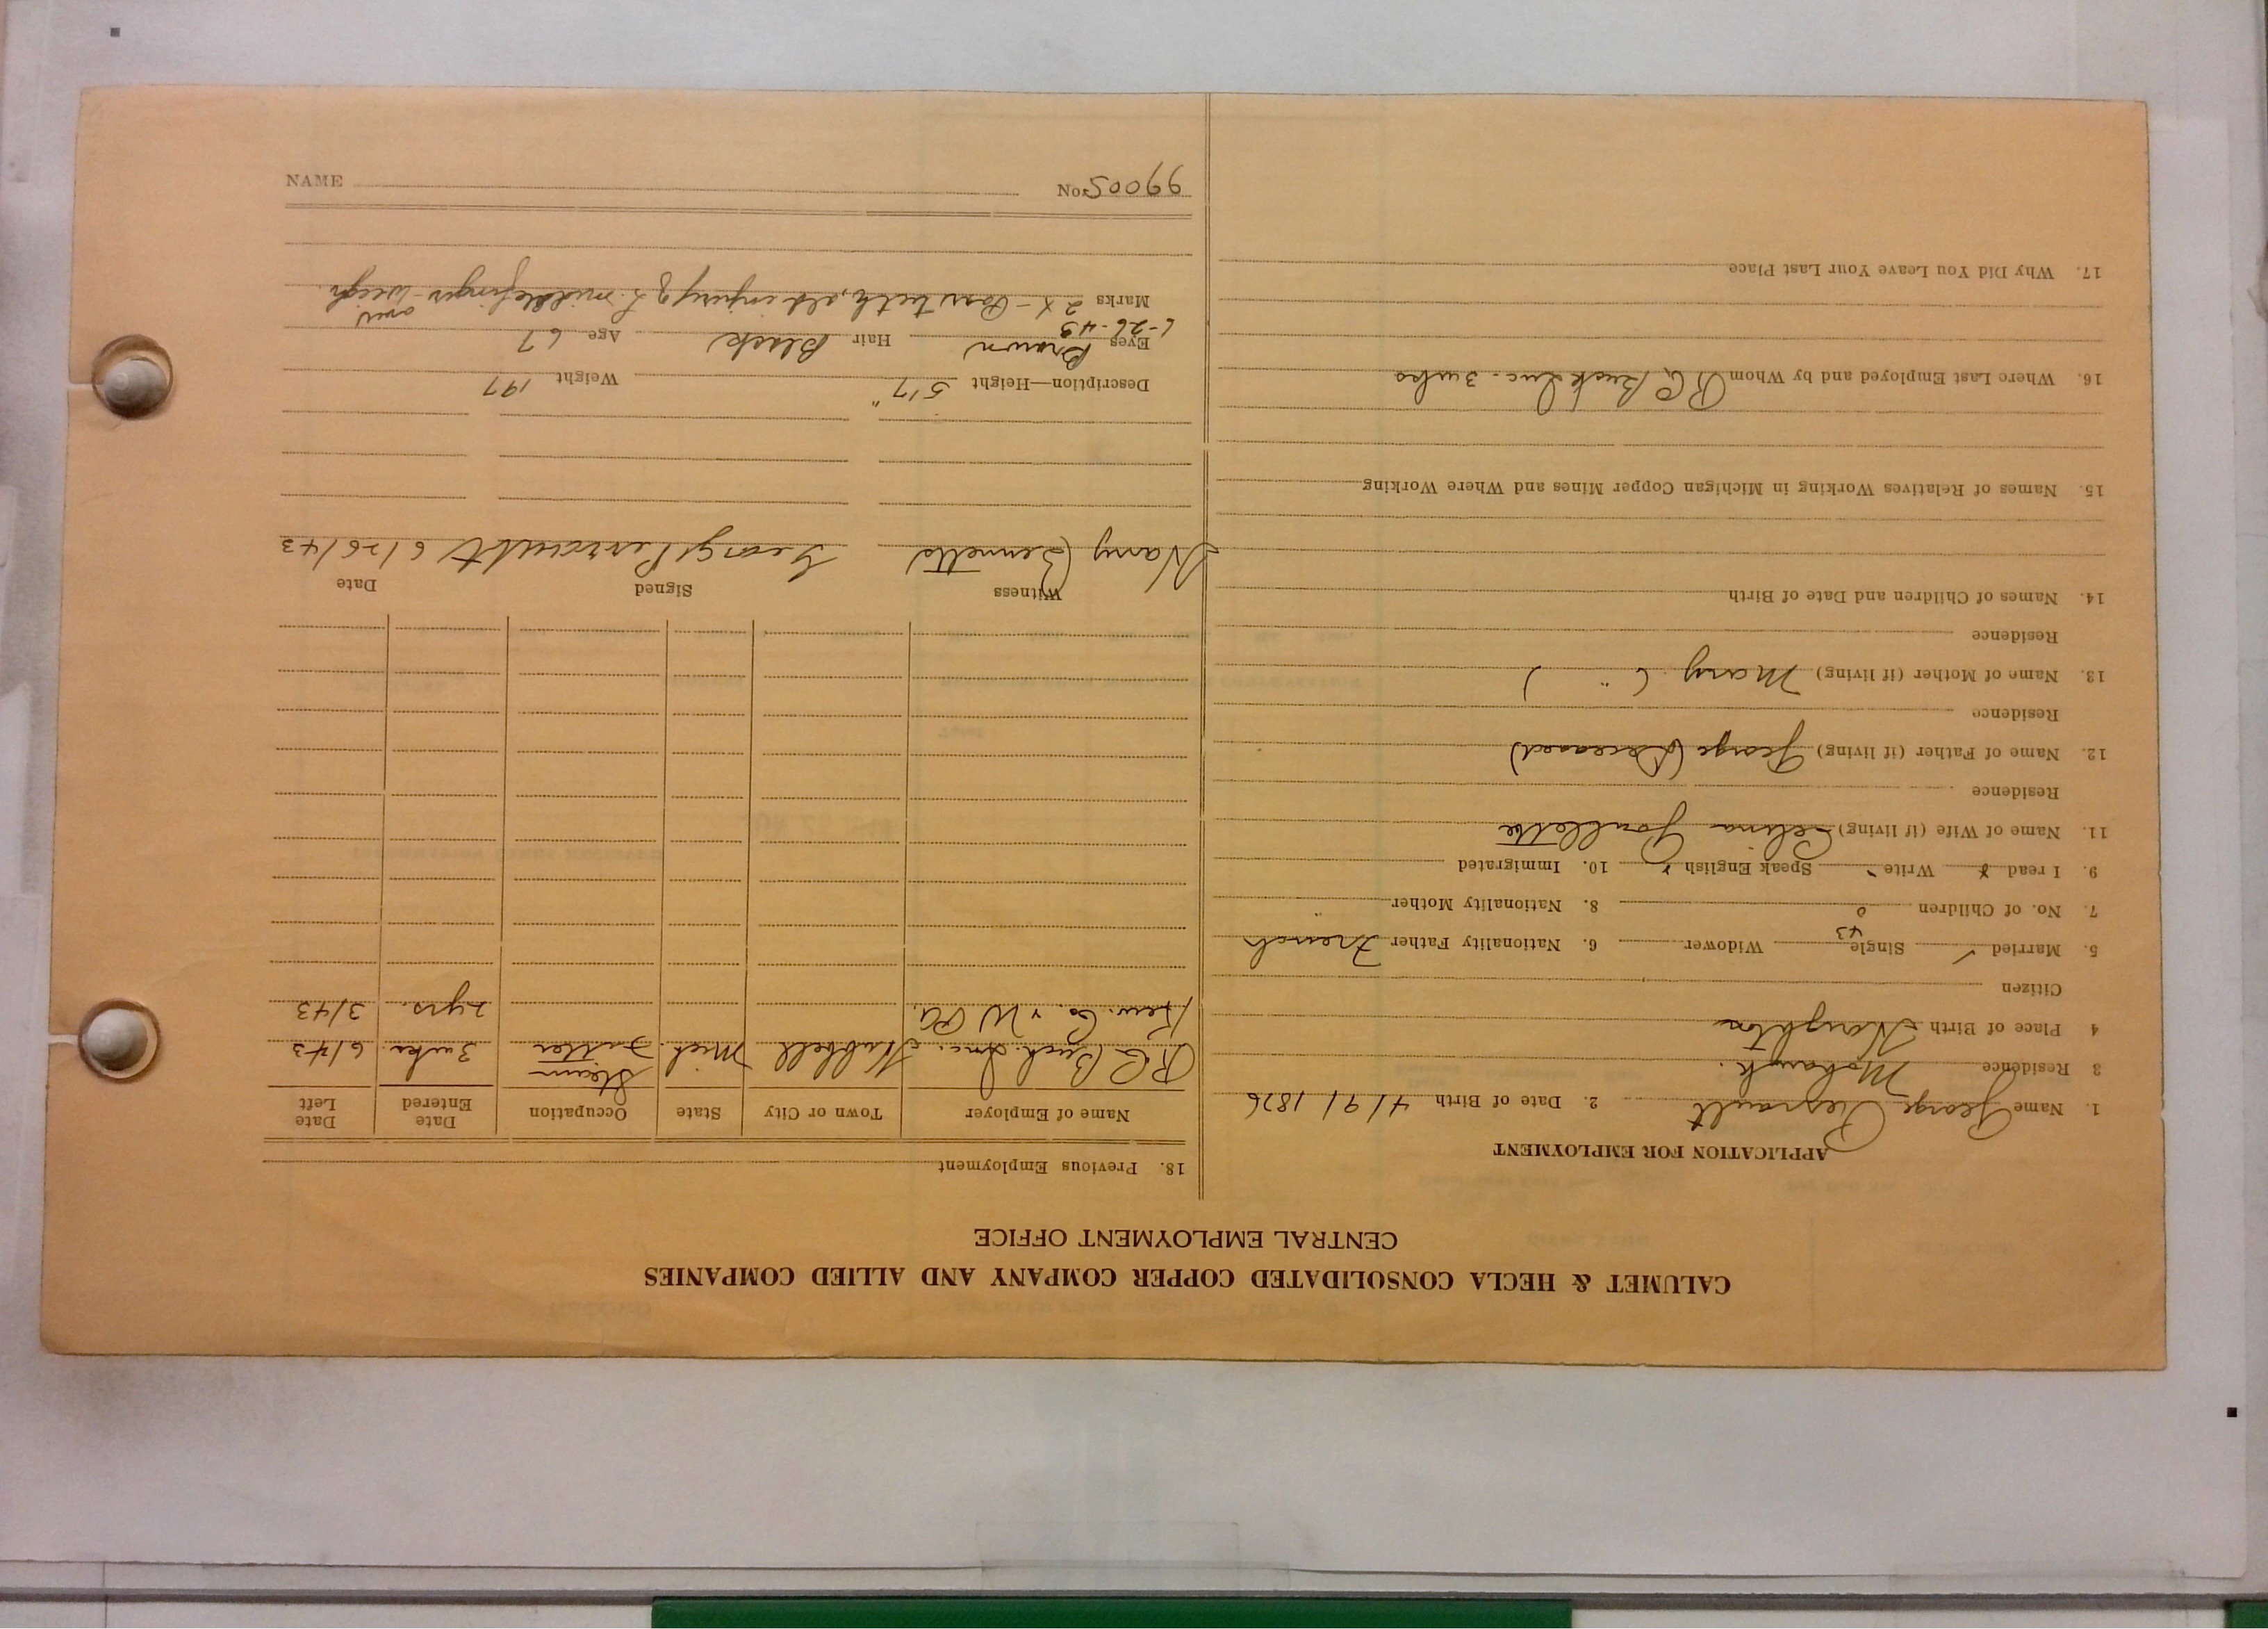 CALUMET & HECLA CONSOLIDATED COPPER COMPANY AND ALLIED COMPANIES
CENTRAL EMPLOYMENT OFFICE
APPLICATION FOR EMPLOYMENT
1. Name George Perrault 2. Date of Birth 4/9/1876
3 Residence Mohawk.
4 Place of Birth Houghton
Citizen
5. Married ✓ 43 Single Widower 6. Nationality Father French
7. No. of Children 0 8. Nationality Mother "
9. I read x Write " Speak English " 10. Immigrated
11. Name of Wife (if living) Celina Goullette
Residence
12. Name of Father (if living) George (Deceased)
Residence
13. Name of Mother (if living) Mary ( " )
Residence
14. Names of Children and Date of Birth
15. Names of Relatives Working in Michigan Copper Mines and Where Working
16. Where Last Employed and by Whom R.C. Buck Inc. - 3 wks
17. Why Did You Leave Your Last Place
18. Previous Employment
Name of Employer Town or City State Occupation Date Entered Date Left
R.C. Buck. Inc. Hubbell Mich. Steam Fitter 3 wks 6/43
Kew. Co. & W.P.A. 2 yrs. 3/43
Witness Signed Date
Harry Bennetts George Perrault 6/26/43
Description—Height 5'7" Weight 197
Eyes Brown Hair Black Age 67
6-26-43
Marks 2X - Poor teeth, old injury of L. middle finger - over weight.
NAME No. 99005